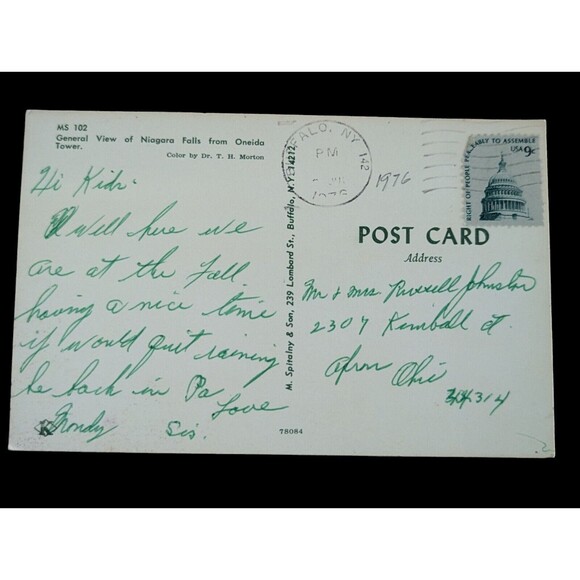 MS 102
General View of Niagara Falls from Oneida
Tower.
Color by Dr. T. H. Morton
Hi Kids.
Well here we
are at the Fall
having a nice time
if would quit raining
be back in Pa
Mondy
Love
Sis.
M. Spitalny & Son, 239 Lombard St., Buffalo, N.Y. 14212
78084
BUFFALO, NY 142
PM
1976
1976
RIGHT OF PEOPLE PEACEABLY TO ASSEMBLE
USA 9c
POST CARD
Address
Mr & Mrs Russell Johnston
2307 Kimball St.
Akron Ohio
44314